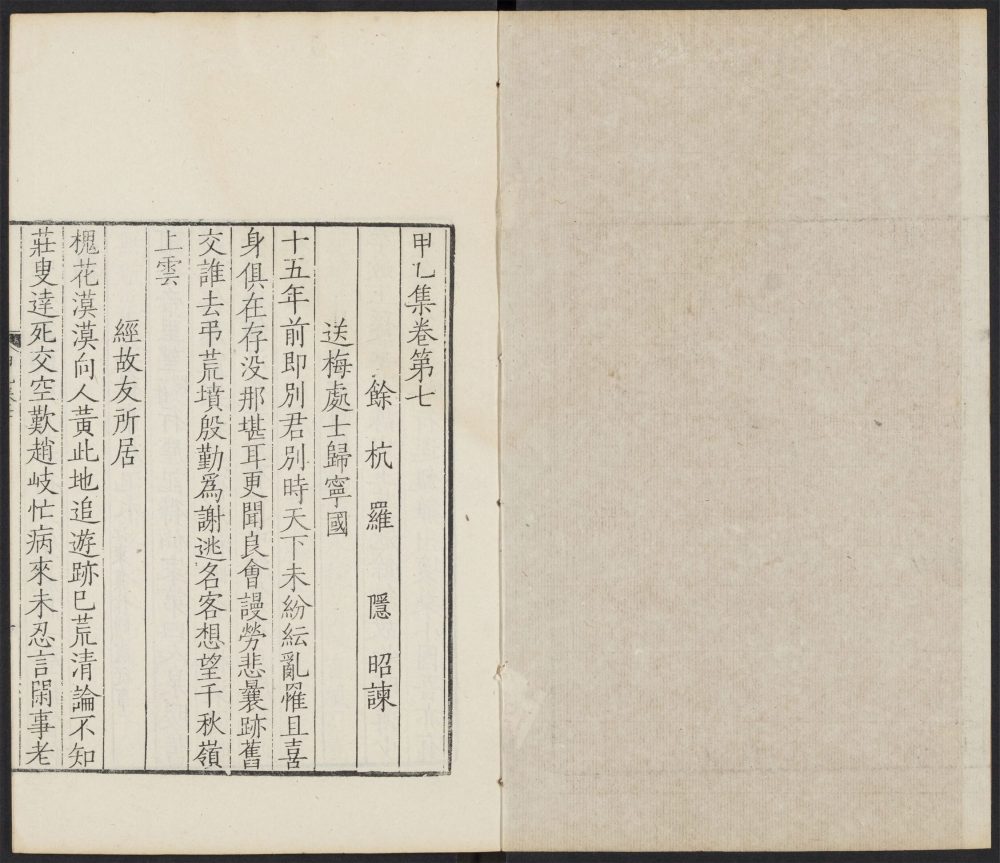 甲乙集卷第七
餘杭羅隱昭諫
送梅處士歸寧國
十五年前即別君別時天下未紛紜亂罹且喜
身俱在存没那堪耳更聞良會謾勞悲曩跡舊
交誰去弔荒墳殷勤爲謝逃名客想望千秋嶺
上雲
經故友所居
槐花漠漠向人黃此地追遊跡已荒清論不知
莊叟達死交空歎趙岐忙病來未忍言閑事老